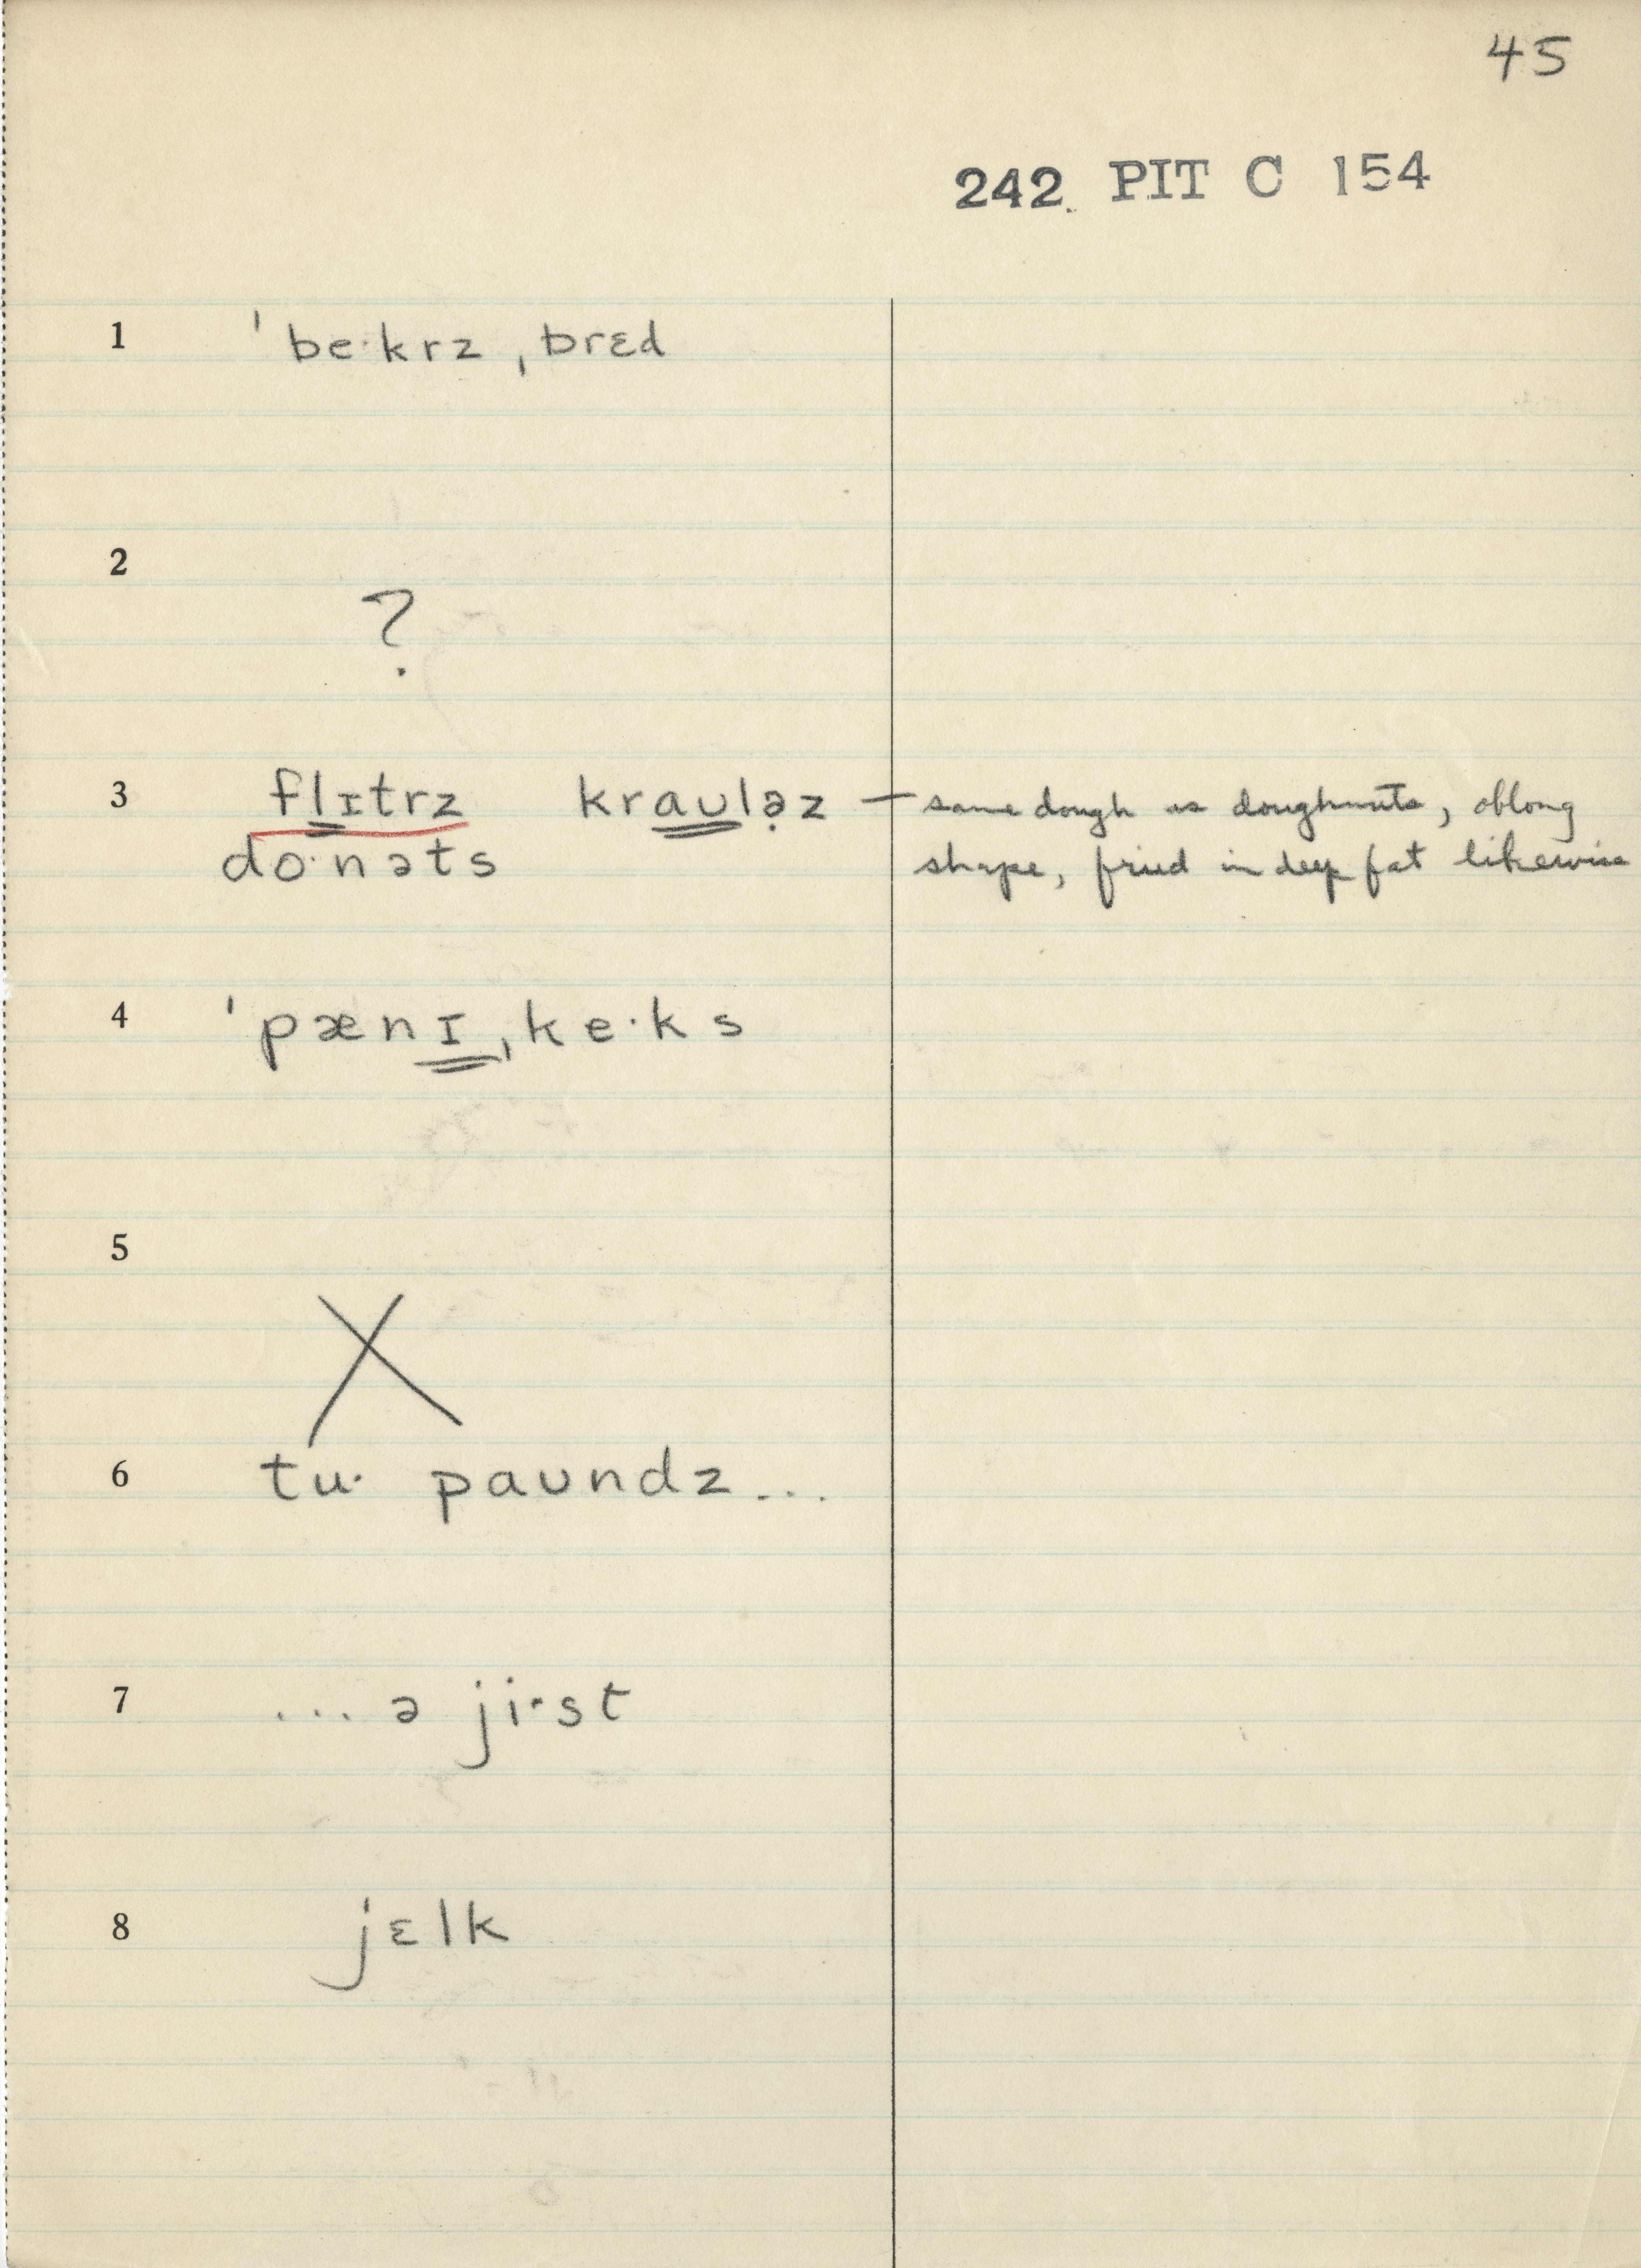 45
242 PIT C 154
1 ˈbe·krz ˌbrɛd
2 ?
3 flɪtrz kraʊlə̣z — same dough as doughnuts, oblong
do·nəts shape, fried in deep fat likewise
4 ˈpænɪˌke·ks
5 X
6 tu· paʊndz...
7 ... ə ji·st
8 jɛlk